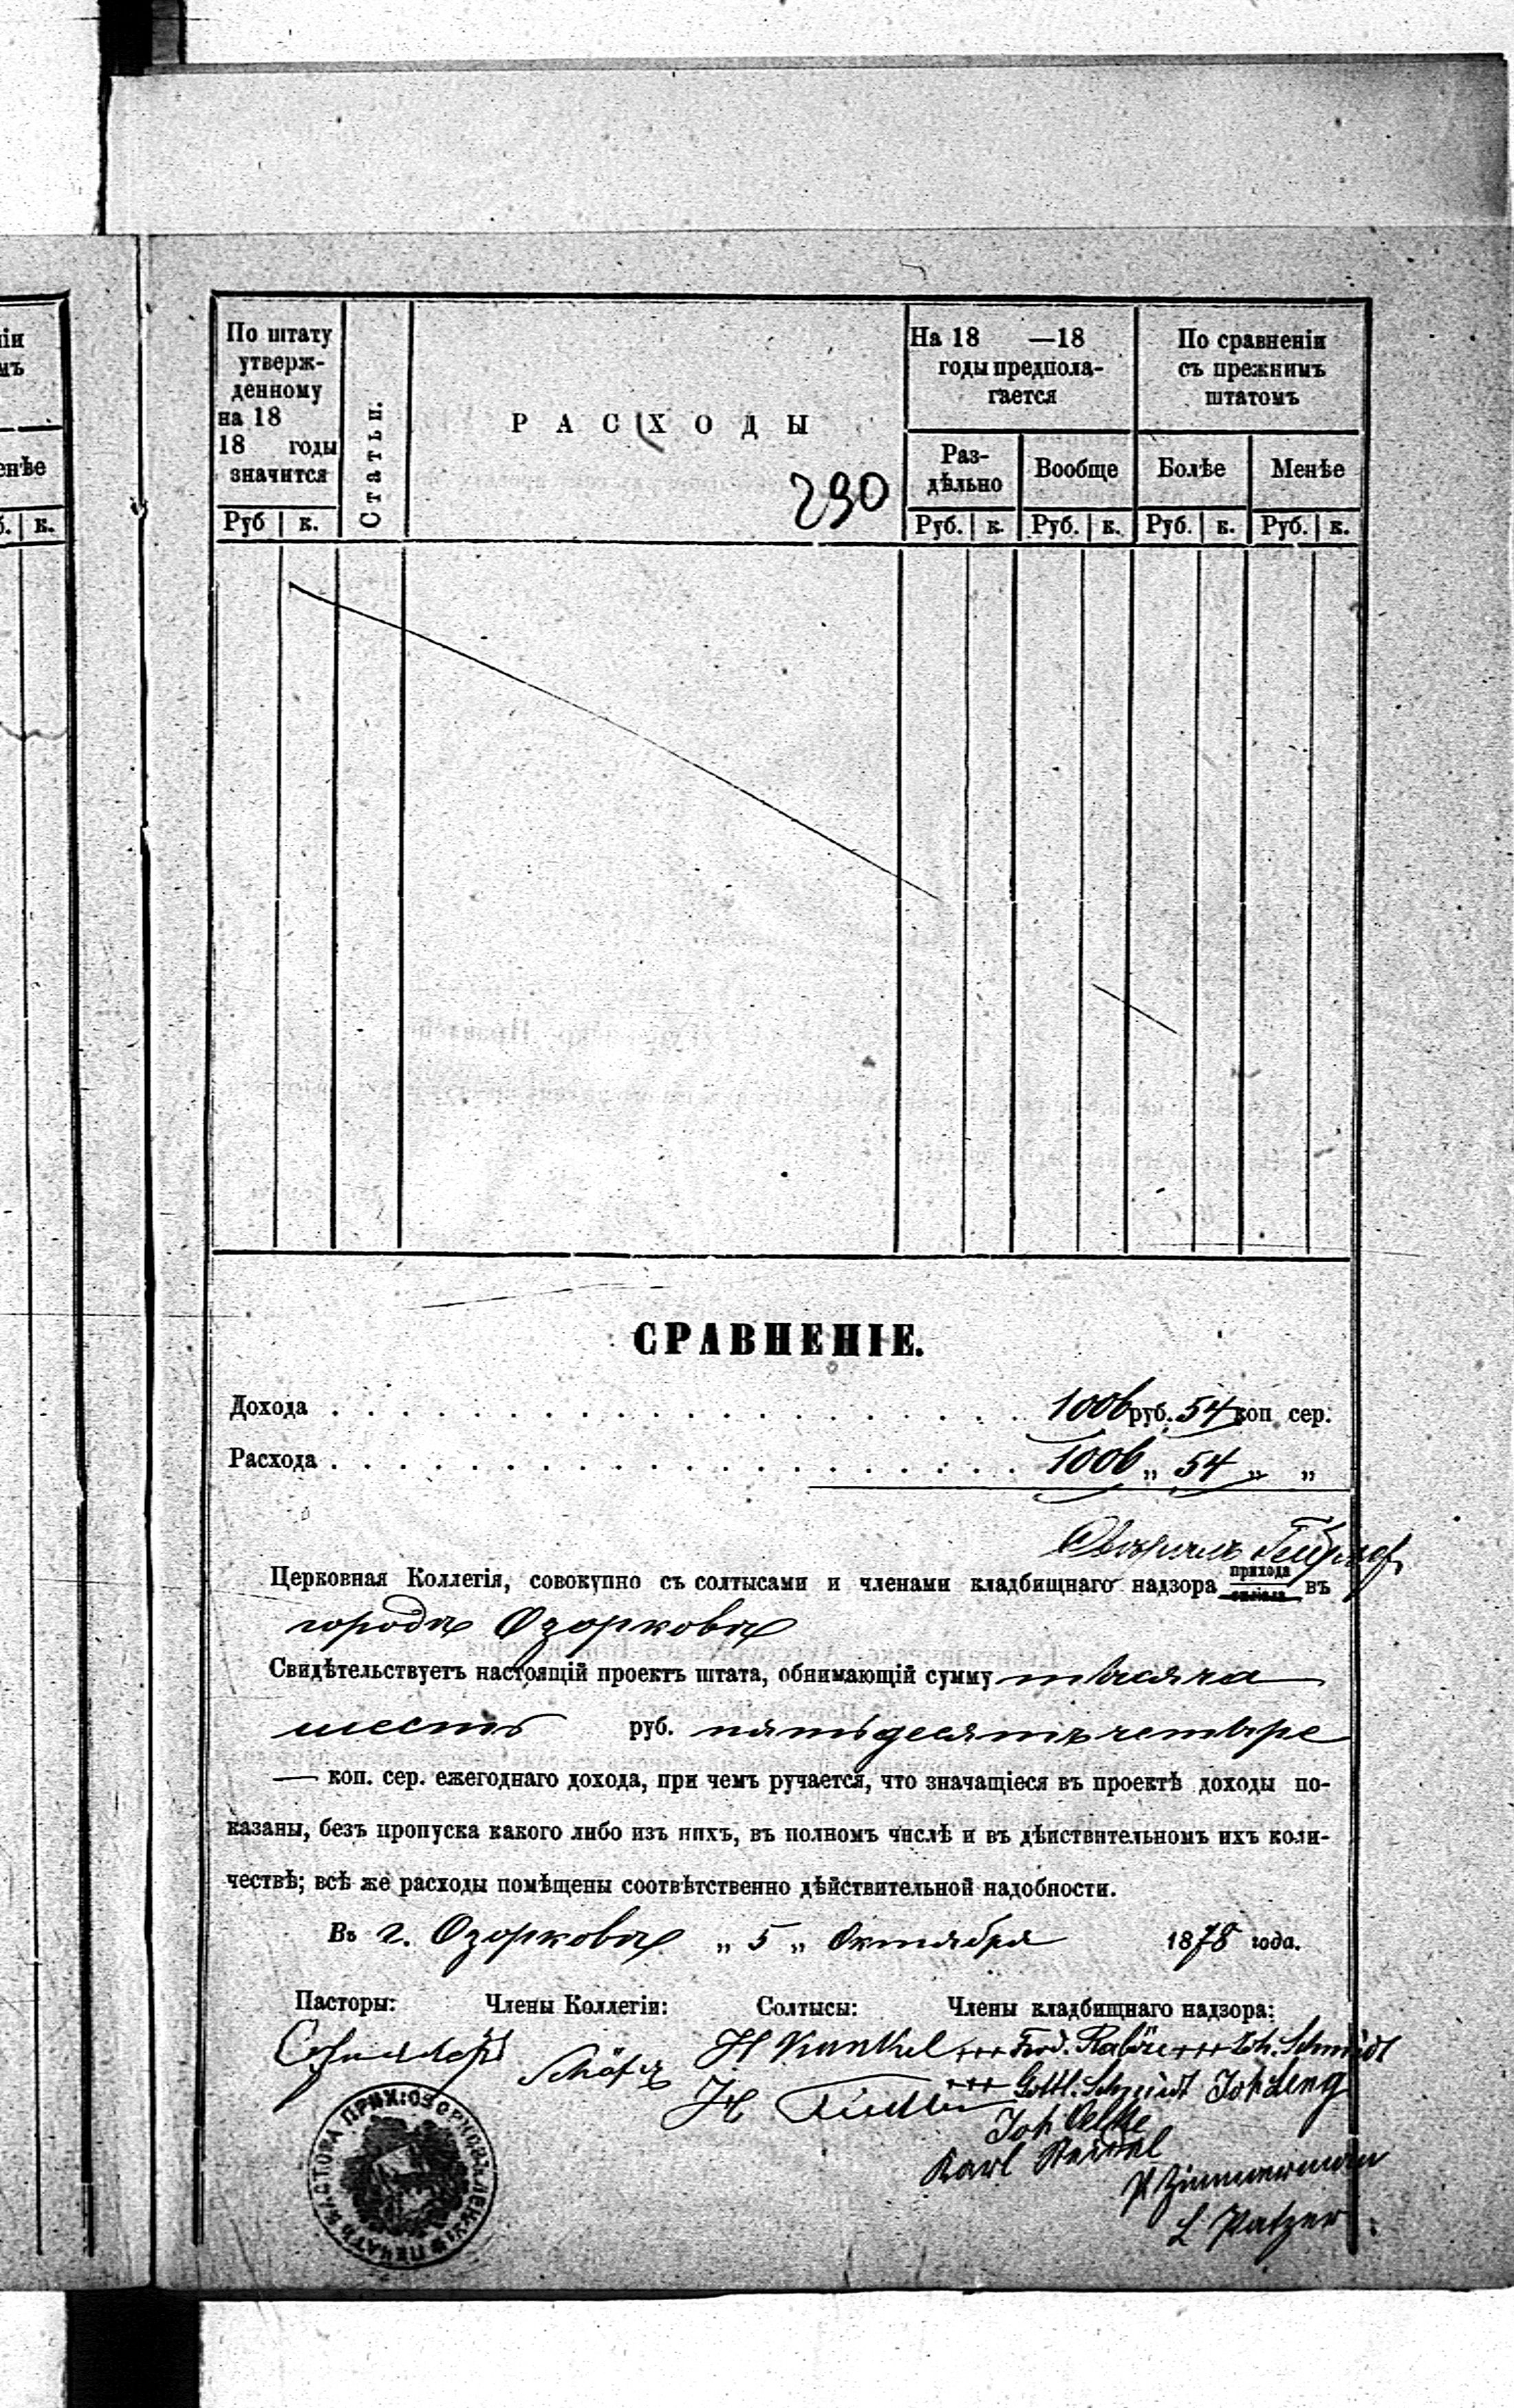 іи
мъ
По штату
утверж-
денному
на 18
18 годы
значится
Статьи.
РАСХОДЫ
На 18 —18
годы предпола-
гается
По сравненіи
съ прежнимъ
штатомъ
енѣе
Раз-
дѣльно
Вообще
Болѣе
Менѣе
290
б. к.
Руб к.
Руб. к. Руб. к. Руб. к. Руб. к.
СРАВНЕНІЕ.
Дохода . . . . . . . . . . . . . . . . . . . . 1006 руб. 54 коп сер.
Расхода . . . . . . . . . . . . . . . . . . . . 1006 „ 54 „ „
Церковная Коллегія, совокупно съ солтысами и членами кладбищнаго надзора прихода въ
городѣ Озорковѣ
Свидѣтельствуетъ настоящій проектъ штата, обнимающій сумму тысяча
шесть руб. пятьдесятъ четыре
— коп. сер. ежегоднаго дохода, при чемъ ручается, что значащіеся въ проектѣ доходы по-
казаны, безъ пропуска какого либо изъ нихъ, въ полномъ числѣ и въ дѣйствительномъ ихъ коли-
чествѣ; всѣ же расходы помѣщены соотвѣтственно дѣйствительной надобности.
Въ г. Озорковѣ „ 5 „ Октября 1878 года.
Пасторы: Члены Коллегіи: Солтысы: Члены кладбищнаго надзора:
H Kunkel +++ Ferd. +++ Joh. Schmidt
Schäfer
+++ Gottl. Schmidt Joh Leng
H Fiedler
Joh
Karl
Zimmerman
L Patzer